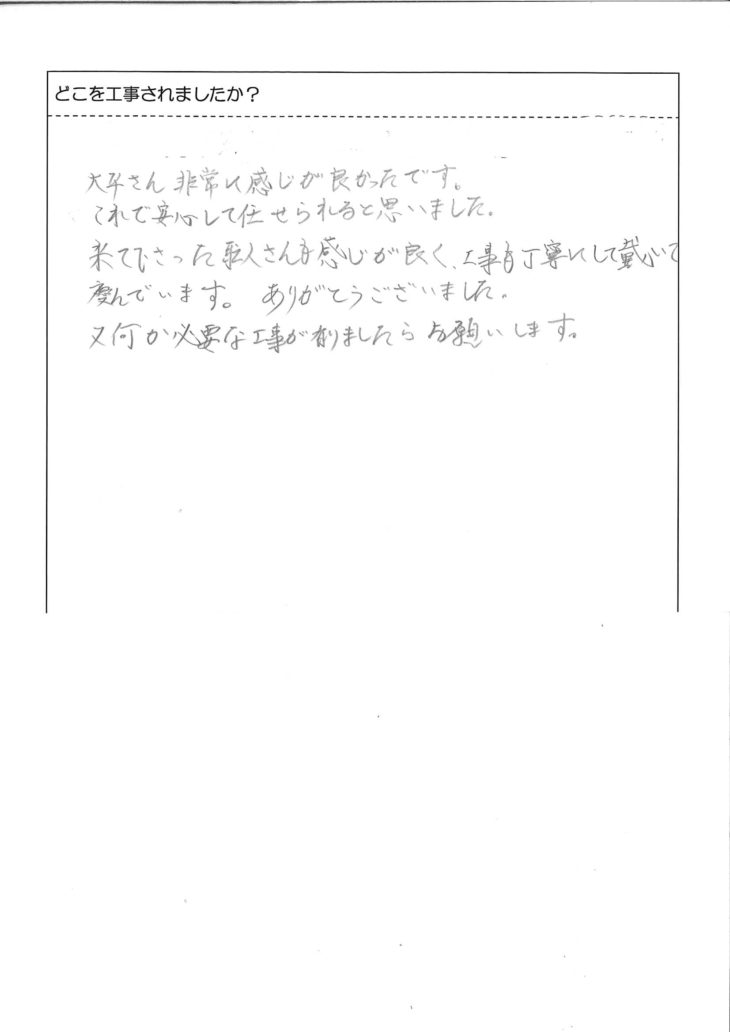 どこを工事されましたか？
大平さん非常に感じが良かったです。
これで安心して任せられると思いました。
来て下さった職人さんも感じが良く、工事も丁寧にして戴いて
慶んでいます。ありがとうございました。
又何か必要な工事が有りましたらお願いします。